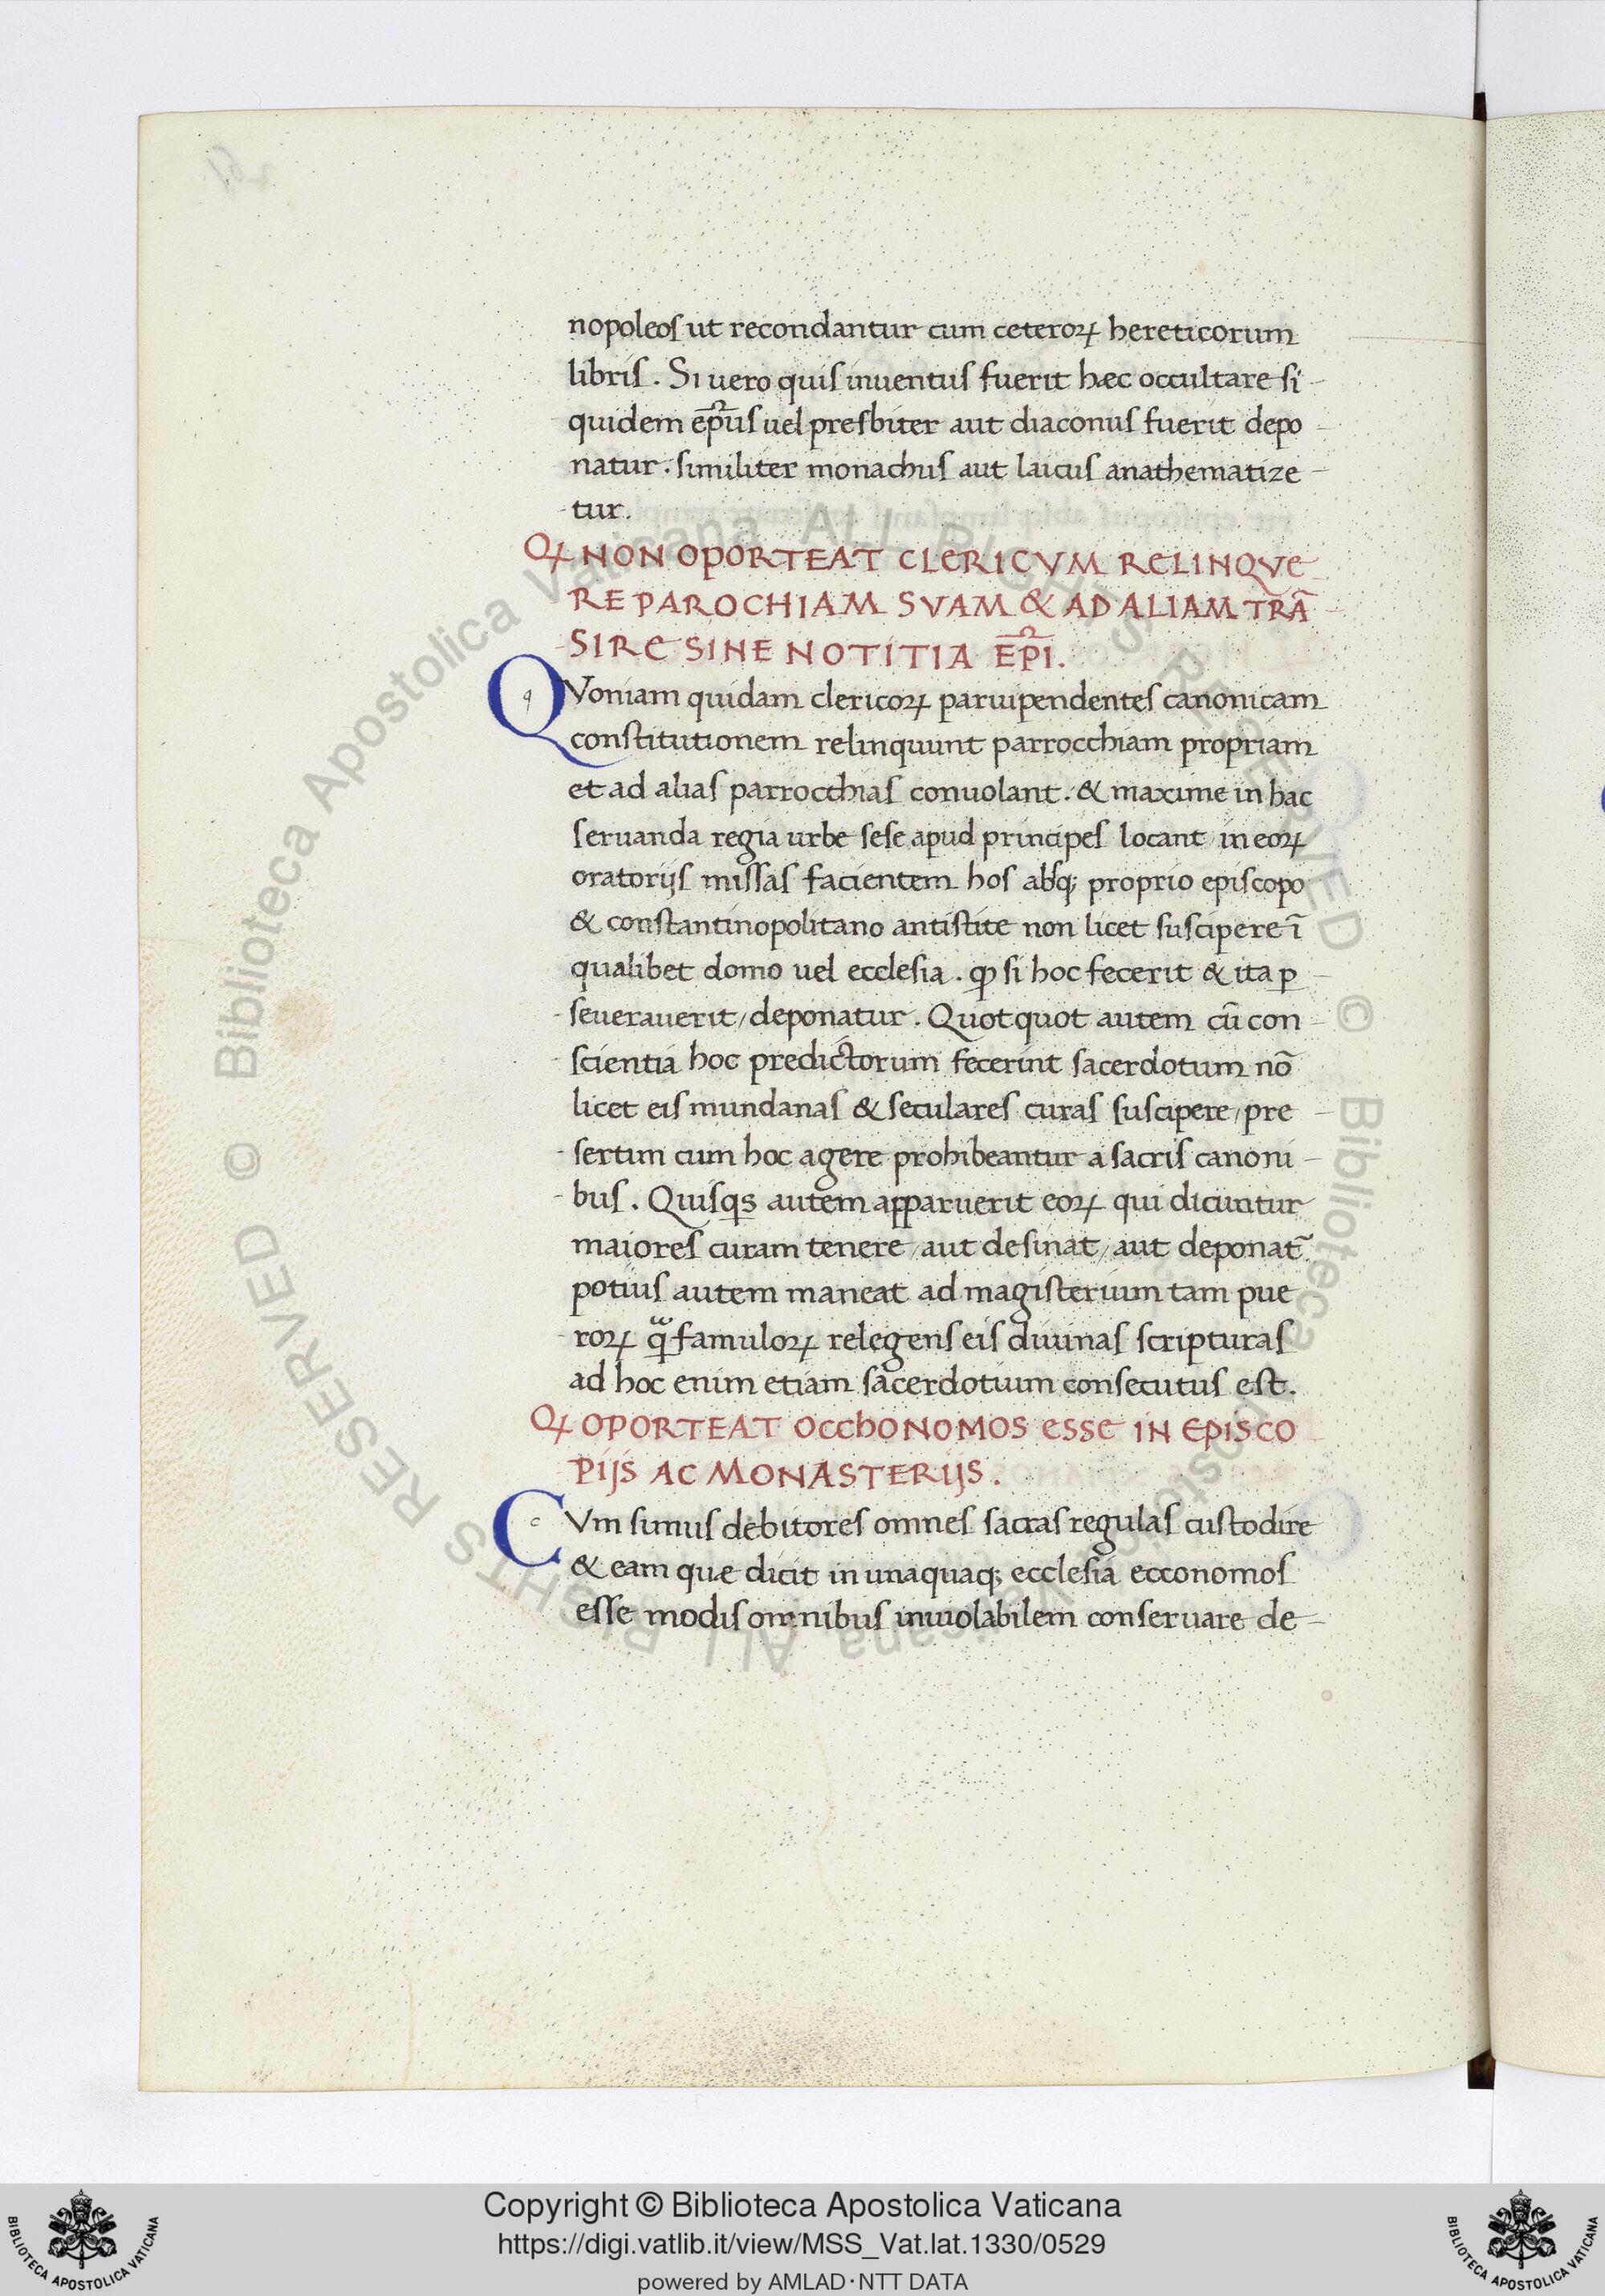 nopoleos ut recondantur cum ceteroꝝ hereticorum
libris. Si uero quis inuentus fuerit hæc occultare si
quidem ep̅us uel presbiter aut diaconus fuerit depo
natur. similiter monachus aut laicus anathematize
tur.
Qꝝ NON OPORTEAT CLERICVM RELINQVE
RE PAROCHIAM SVAM & AD ALIAM TRÃ
SIRE SINE NOTITIA EP̅I.
QVoniam quidam clericoꝝ paruipendentes canonicam
constitutionem relinquunt parrocchiam propriam
et ad alias parrocchias conuolant. & maxime in hac
seruanda regia urbe sese apud principes locant in eoꝝ
oratorijs missas facientem hos absq; proprio episcopo
& constantinopolitano antistite non licet suscipere ĩ
qualibet domo uel ecclesia. ꝙ si hoc fecerit & ita ꝑ
seuerauerit/ deponatur. Quotquot autem cũ con
scientia hoc predictorum fecerint sacerdotum nõ
licet eis mundanas & seculares curas suscipere/ pre
sertim cum hoc agere prohibeantur a sacris canoni
bus. Quisqs autem apparuerit eoꝝ qui dicuntur
maiores curam tenere/ aut desinat/ aut deponat᷑.
potius autem maneat ad magisterium tam pue
roꝝ qᷓ famuloꝝ relegens eis diuinas scripturas
ad hoc enim etiam sacerdotium consecutus est.
Qꝝ OPORTEAT OCCHONOMOS ESSE IN EPISCO
PIJS AC MONASTERIJS.
CVm simus debitores omnes sacras regulas custodire
& eam quæ dicit in unaquaq; ecclesia ecconomos
esse modis omnibus inuiolabilem conseruare de
Copyright © Biblioteca Apostolica Vaticana
https://digi.vatlib.it/view/MSS_Vat.lat.1330/0529
powered by AMLAD·NTT DATA
© Biblioteca Apostolica Vaticana ALL RIGHTS RESERVED © Biblioteca Apostolica Vaticana ALL RIGHTS RESERVED
BIBLIOTECA APOSTOLICA VATICANA
BIBLIOTECA APOSTOLICA VATICANA